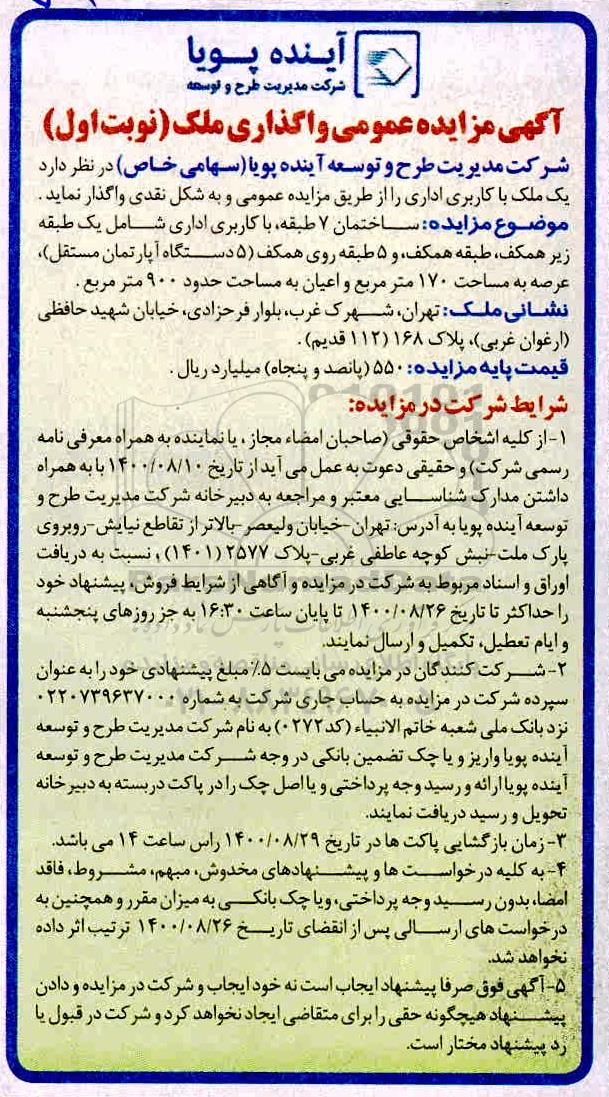 آینده پویا
شرکت مدیریت طرح و توسعه
آگهی مزایده عمومی واگذاری ملک (نوبت اول)
شرکت مدیریت طرح و توسعه آینده پویا (سهامی خاص) در نظر دارد
یک ملک با کاربری اداری را از طریق مزایده عمومی و به شکل نقدی واگذار نماید.
موضوع مزایده: ساختمان ۷ طبقه، با کاربری اداری شامل یک طبقه
زیر همکف، طبقه همکف، و ۵ طبقه روی همکف (۵ دستگاه آپارتمان مستقل)،
عرصه به مساحت ۱۷۰ متر مربع و اعیان به مساحت حدود ۹۰۰ متر مربع.
نشانی ملک: تهران، شهرک غرب، بلوار فرحزادی، خیابان شهید حافظی
(ارغوان غربی)، پلاک ۱۶۸ (۱۱۲ قدیم).
قیمت پایه مزایده: ۵۵۰ (پانصد و پنجاه) میلیارد ریال.
شرایط شرکت در مزایده:
۱- از کلیه اشخاص حقوقی (صاحبان امضاء مجاز، یا نماینده به همراه معرفی نامه
رسمی شرکت) و حقیقی دعوت به عمل می آید از تاریخ ۱۴۰۰/۰۸/۱۰ با به همراه
داشتن مدارک شناسایی معتبر و مراجعه به دبیرخانه شرکت مدیریت طرح و
توسعه آینده پویا به آدرس: تهران-خیابان ولیعصر-بالاتر از تقاطع نیایش-روبروی
پارک ملت-نبش کوچه عاطفی غربی-پلاک ۲۵۷۷ (۱۴۰۱)، نسبت به دریافت
اوراق و اسناد مربوط به شرکت در مزایده و آگاهی از شرایط فروش، پیشنهاد خود
را حداکثر تا تاریخ ۱۴۰۰/۰۸/۲۶ تا پایان ساعت ۱۶:۳۰ به جز روزهای پنجشنبه
و ایام تعطیل، تکمیل و ارسال نمایند.
۲- شرکت کنندگان در مزایده می بایست ۵٪ مبلغ پیشنهادی خود را به عنوان
سپرده شرکت در مزایده به حساب جاری شرکت به شماره ۰۲۲۰۷۳۹۶۳۷۰۰۰
نزد بانک ملی شعبه خاتم الانبیاء (کد ۰۲۷۲) به نام شرکت مدیریت طرح و توسعه
آینده پویا واریز و یا چک تضمین بانکی در وجه شرکت مدیریت طرح و توسعه
آینده پویا ارائه و رسید وجه پرداختی و یا اصل چک را در پاکت دربسته به دبیرخانه
تحویل و رسید دریافت نمایند.
۳- زمان بازگشایی پاکت ها در تاریخ ۱۴۰۰/۰۸/۲۹ راس ساعت ۱۴ می باشد.
۴- به کلیه درخواست ها و پیشنهادهای مخدوش، مبهم، مشروط، فاقد
امضا، بدون رسید وجه پرداختی، ویا چک بانکی به میزان مقرر و همچنین به
درخواست های ارسالی پس از انقضای تاریخ ۱۴۰۰/۰۸/۲۶ ترتیب اثر داده
نخواهد شد.
۵- آگهی فوق صرفا پیشنهاد ایجاب است نه خود ایجاب و شرکت در مزایده و دادن
پیشنهاد هیچگونه حقی را برای متقاضی ایجاد نخواهد کرد و شرکت در قبول یا
رد پیشنهاد مختار است.